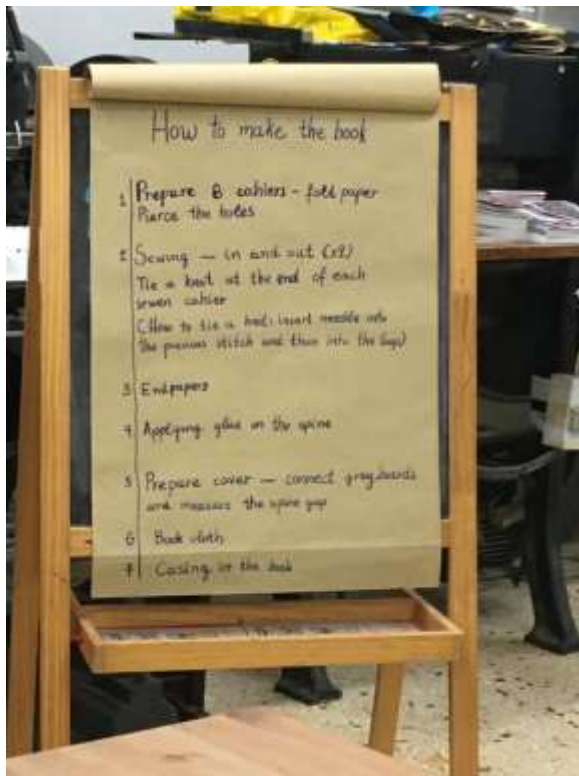 How to make the book
1 Prepare 6 cahiers - fold paper
Pierce the holes
2 Sewing — in and out (x2)
Tie a knot at the end of each
sewn cahier
(How to tie a knot: insert needle into
the previous stitch and then into the loop)
3 Endpapers
4 Applying glue on the spine
5 Prepare cover — connect grayboards
and measure the spine gap
6 Book cloth
7 Casing in the book